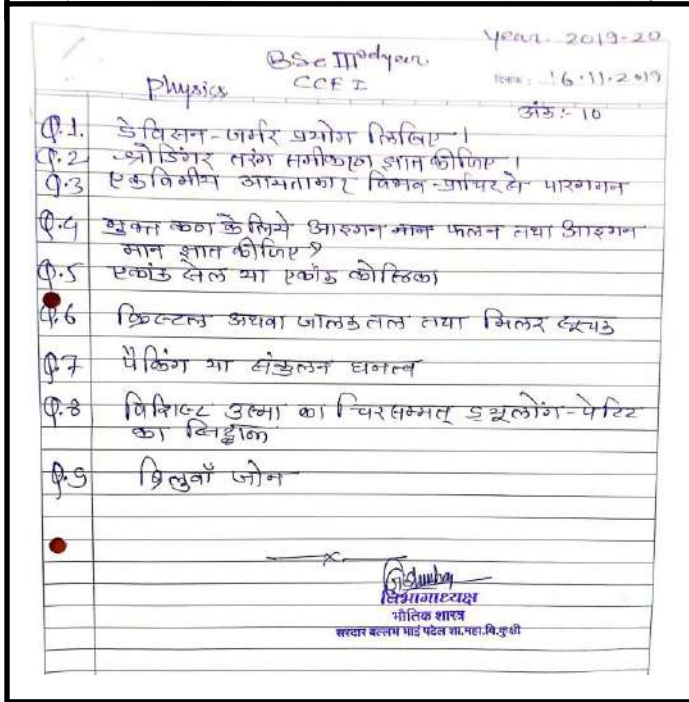 Year- 2019-20
BSc IIIrd year
Physics CCE I दिनांक : 16.11.2019
अंक :- 10
Q.1. डेविसन-जर्मर प्रयोग लिखिए।
Q.2 श्रोडिंगर तरंग समीकरण ज्ञात कीजिए।
Q.3 एकविमीय आयताकार विभव-प्राचिर से पारगमन
Q.4 मुक्त कण के लिये आइगन मान फलन तथा आइगन
मान ज्ञात कीजिए?
Q.5 एकांक सेल या एकांक कोष्ठिका
Q.6 क्रिस्टल अथवा जालक तल तथा मिलर सूचक
Q.7 पैकिंग या संकुलन घनत्व
Q.8 विशिष्ट उष्मा का चिरसम्मत् ड्यूलोंग-पेटिट
का सिद्धांत
Q.9 ब्रिलुवाँ जोन
x
विभागाध्यक्ष
भौतिक शास्त्र
सरदार वल्लभ भाई पटेल शा.महा.वि.कुक्षी